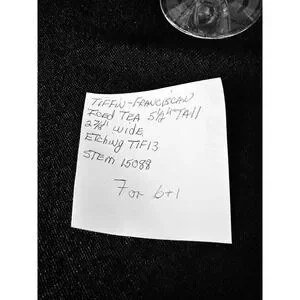 TIFFIN-FRANCISCAN
ICED TEA 5½" TALL
2⅞" WIDE
ETCHING TIF13
STEM 15088
7 or 6+1